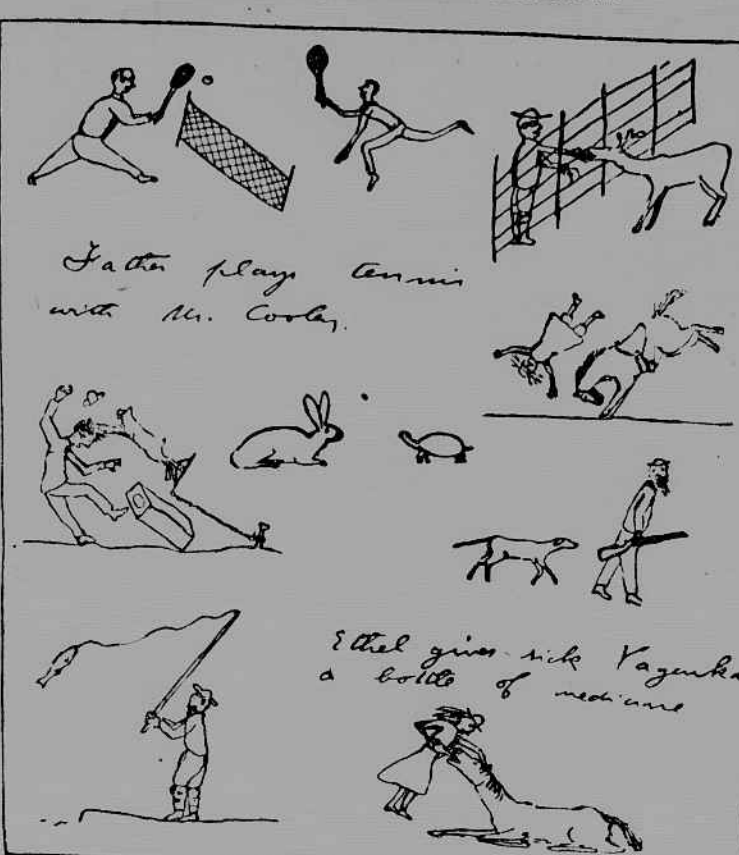 Father plays tennis
with Mr. Cooley.
Ethel gives sick Yagenka
a bottle of medicine